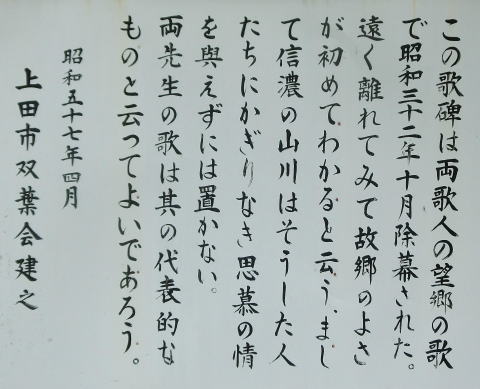 この歌碑は両歌人の望郷の歌
で昭和三十二年十月除幕された。
遠く離れてみて故郷のよさ
が初めてわかると云う、まし
て信濃の山川はそうした人
たちにかぎりなき思慕の情
を與えずには置かない。
両先生の歌は其の代表的な
ものと云ってよいであろう。
昭和五十七年四月
上田市双葉会建之